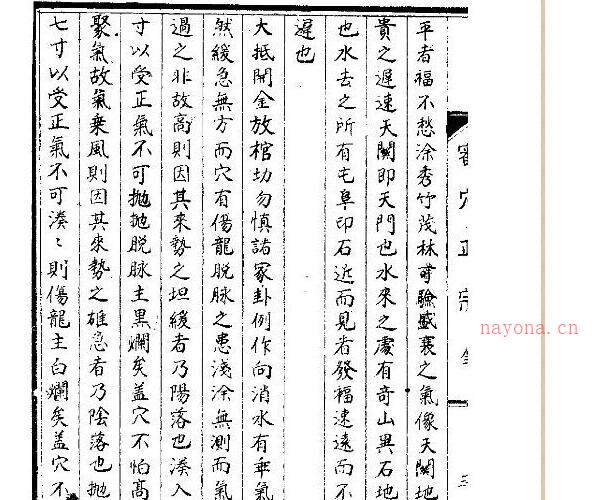 平者福不愁涂秀竹茂林可驗盛衰之氣像天關地
貴之遲速天關即天門也水來之處有奇山異石地
也水去之所有屯阜印石近而見者發福速遠而不
遲也
大抵開金放棺切勿慎諸家卦例作向消水有乖氣
然緩急無方而穴有傷龍脫脉之患淺涂無測而氣
過之非故高則因其來勢之坦緩者乃陽落也湊入
寸以受正氣不可拋拋脫脉主黑爛矣盖穴不怕高
聚氣故氣乗風則因其來勢之雄急者乃陰落也拋
七寸以受正氣不可湊〻則傷龍主白爛矣盖穴不
穴正宗全
nayona.cn